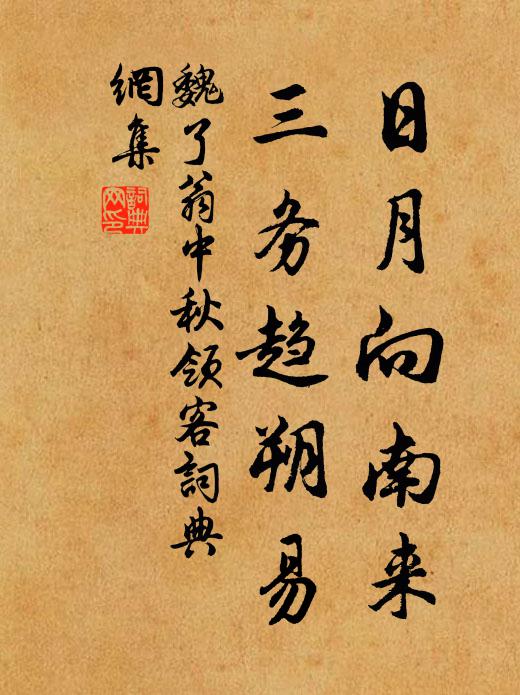 日月向南来
三务趋朔易
魏了翁中秋领客詞典
網集
詞典
网印